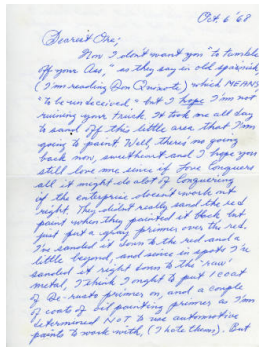 Oct. 6 '68
Dearest One;
Now I don't want you "to tumble
off your Ass," as they say in old spanish,
(I'm reading Don Quixote) which MEANS
"to be undeceived," but I hope I'm not
ruining your truck. It took me all day
to sand off this little area that I'm
going to paint Well, there's no going
back now, sweetheart and I hope you
still love me since if Love Conquers
all it might do alot of Conquering
if the enterprise doesn't work out
right. They didn't really sand the red
paint when they painted it black but
just put a gray primer over the red.
I've sanded it down to the red and a
little beyond, and since in spots I've
sanded it right down to the 'raw'
metal, I think I ought to put 1 coat
of De-rusto primer on, and a couple
of coats of oil painting primer as I'm
determined NOT to use automotive
paints to work with, (I hate them). But